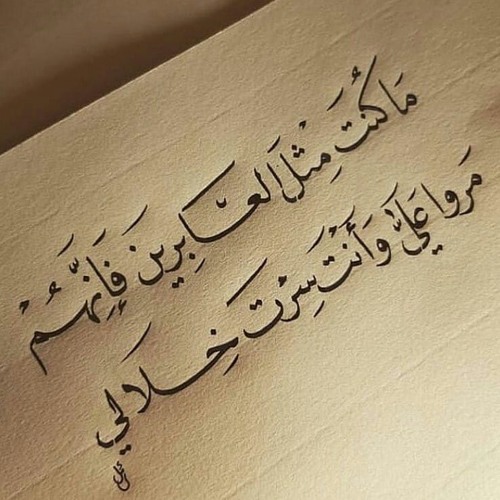 مَا كُنتَ مِثْلَ العَابِرِينَ فَإِنَّهُمْ
مَروا عَلَيَّ وَأَنْتَ سِرْتَ خِلَالي